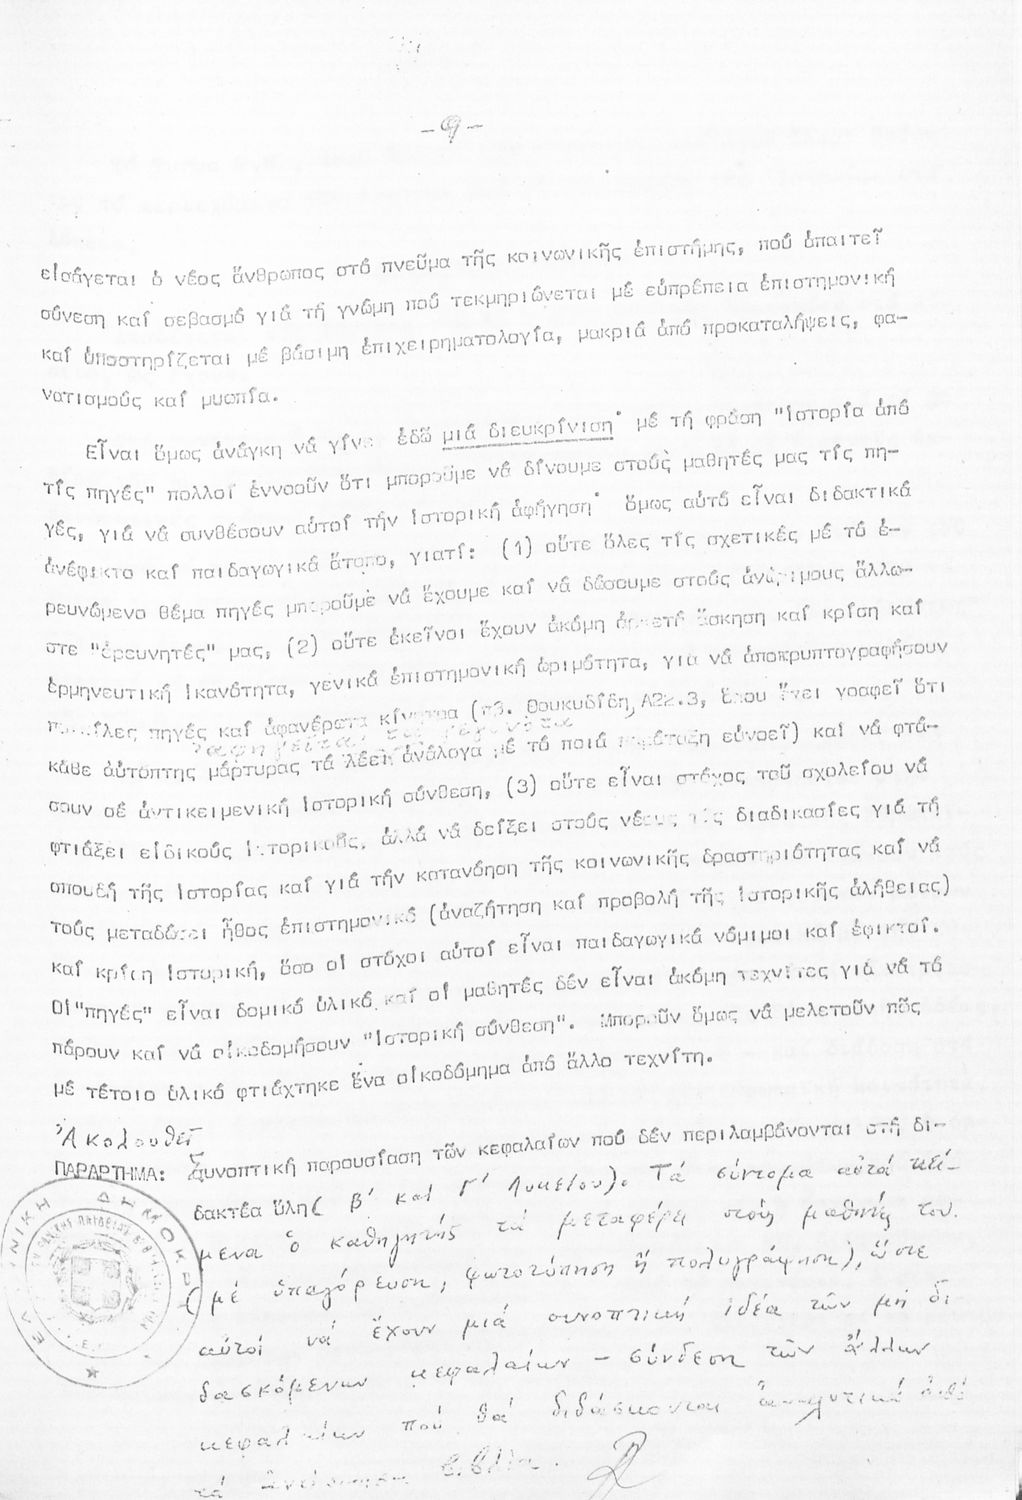 -9-
εἰσάγεται ὁ νέος ἄνθρωπος στό πνεῦμα τῆς κοινωνικῆς ἐπιστήμης, πού ἀπαιτεῖ
σύνεση καί σεβασμό γιά τή γνώμη πού τεκμηριώνεται μέ εὐπρέπεια ἐπιστημονική
καί ὑποστηρίζεται μέ βάσιμη ἐπιχειρηματολογία, μακριά ἀπό προκαταλήψεις, φα-
νατισμούς καί μυωπία.
Εἶναι ὅμως ἀνάγκη νά γίνει ἐδῶ μιά διευκρίνιση· μέ τή φράση "ἱστορία ἀπό
τίς πηγές" πολλοί ἐννοοῦν ὅτι μποροῦμε νά δίνουμε στούς μαθητές μας τίς πη-
γές, γιά νά συνθέσουν αὐτοί τήν ἱστορική ἀφήγηση· ὅμως αὐτό εἶναι διδακτικά
ἀνέφικτο καί παιδαγωγικά ἄτοπο, γιατί: (1) οὔτε ὅλες τίς σχετικές μέ τό ἐ-
ρευνώμενο θέμα πηγές μποροῦμε νά ἔχουμε καί νά δώσουμε στούς ἀνώριμους ἄλλω-
στε "ἐρευνητές" μας, (2) οὔτε ἐκεῖνοι ἔχουν ἀκόμη ἀρκετή ἄσκηση καί κρίση καί
ἑρμηνευτική ἱκανότητα, γενικά ἐπιστημονική ὡριμότητα, γιά νά ἀποκρυπτογραφήσουν
ποικίλες πηγές καί ἀφανέρωτα κίνητρα (πβ. Θουκυδίδη, Α22.3, ὅπου γραφεῖ ὅτι
κάθε αὐτόπτης μάρτυρας τά λέει ἀνάλογα μέ τό ποιά παράταξη εὐνοεῖ) καί νά φτά-
σουν σέ ἀντικειμενική ἱστορική σύνθεση, (3) οὔτε εἶναι στόχος τοῦ σχολείου νά
φτιάξει εἰδικούς ἱστορικούς, ἀλλά νά δείξει στούς νέους τίς διαδικασίες γιά τή
σπουδή τῆς ἱστορίας καί γιά τήν κατανόηση τῆς κοινωνικῆς δραστηριότητας καί νά
τούς μεταδώσει ἦθος ἐπιστημονικό (ἀναζήτηση καί προβολή τῆς ἱστορικῆς ἀλήθειας)
καί κρίση ἱστορική, ὅσο οἱ στόχοι αὐτοί εἶναι παιδαγωγικά νόμιμοι καί ἐφικτοί.
Οἱ "πηγές" εἶναι δομικό ὑλικό, καί οἱ μαθητές δέν εἶναι ἀκόμη τεχνίτες γιά νά τό
πάρουν καί νά οἰκοδομήσουν "ἱστορική σύνθεση". Μποροῦν ὅμως νά μελετοῦν πῶς
μέ τέτοιο ὑλικό φτιάχτηκε ἕνα οἰκοδόμημα ἀπό ἄλλο τεχνίτη.
Ἀκολουθεῖ
ΠΑΡΑΡΤΗΜΑ: Συνοπτική παρουσίαση τῶν κεφαλαίων πού δέν περιλαμβάνονται στή δι-
δακτέα ὕλη (Β' καί Γ' Λυκείου). Τά σύντομα αὐτά κεί-
μενα ὁ καθηγητής τά μεταφέρει στούς μαθητές του
(μέ ὑπαγόρευση, φωτοτύπηση ἤ πολυγράφηση), ὥστε
αὐτοί νά ἔχουν μιά συνοπτική ἰδέα τῶν μή δι-
δασκόμενων κεφαλαίων - σύνδεση τῶν ἄλλων
κεφαλαίων πού θά διδάσκονται ἀναλυτικά ἀπό
τά ἀντίστοιχα βιβλία.
ΕΛΛΗΝΙΚΗ ΔΗΜΟΚΡΑΤΙΑ